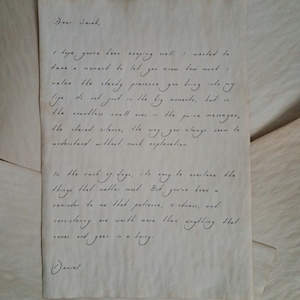 Dear Sarah,
I hope you've been keeping well. I wanted to
take a moment to let you know how much I
value the steady presence you bring into my
life. It's not just in the big moments, but in
the countless small ones in the quiet messages,
the shared silence, the way you always seem to
understand without much explanation.
In the rush of days, it's easy to overlook the
things that matter most. But you've been a
reminder to me that patience, kindness, and
consistency are worth more than anything that
comes and goes in a hurry.
Daniel